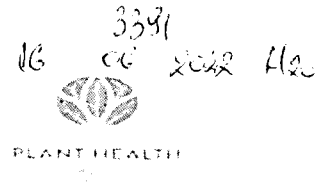 3391
16 06 2022
PLANT HEALTH